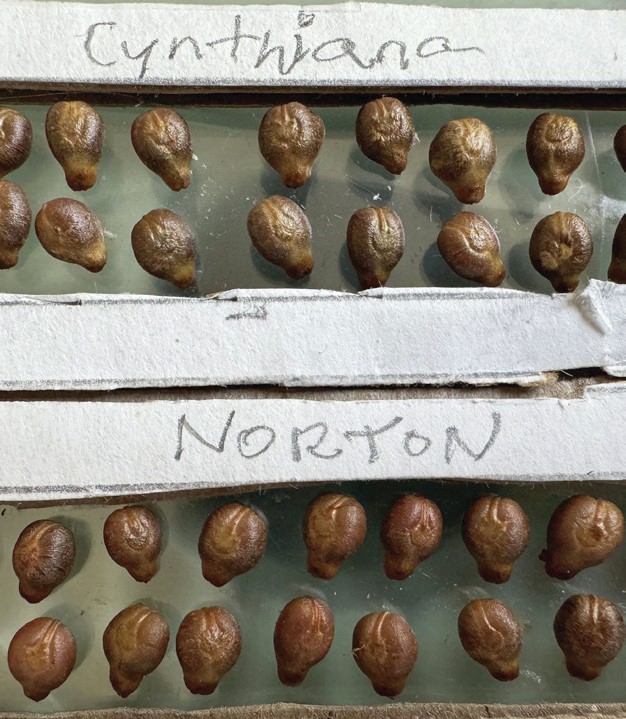 Cynthiana
NORTON